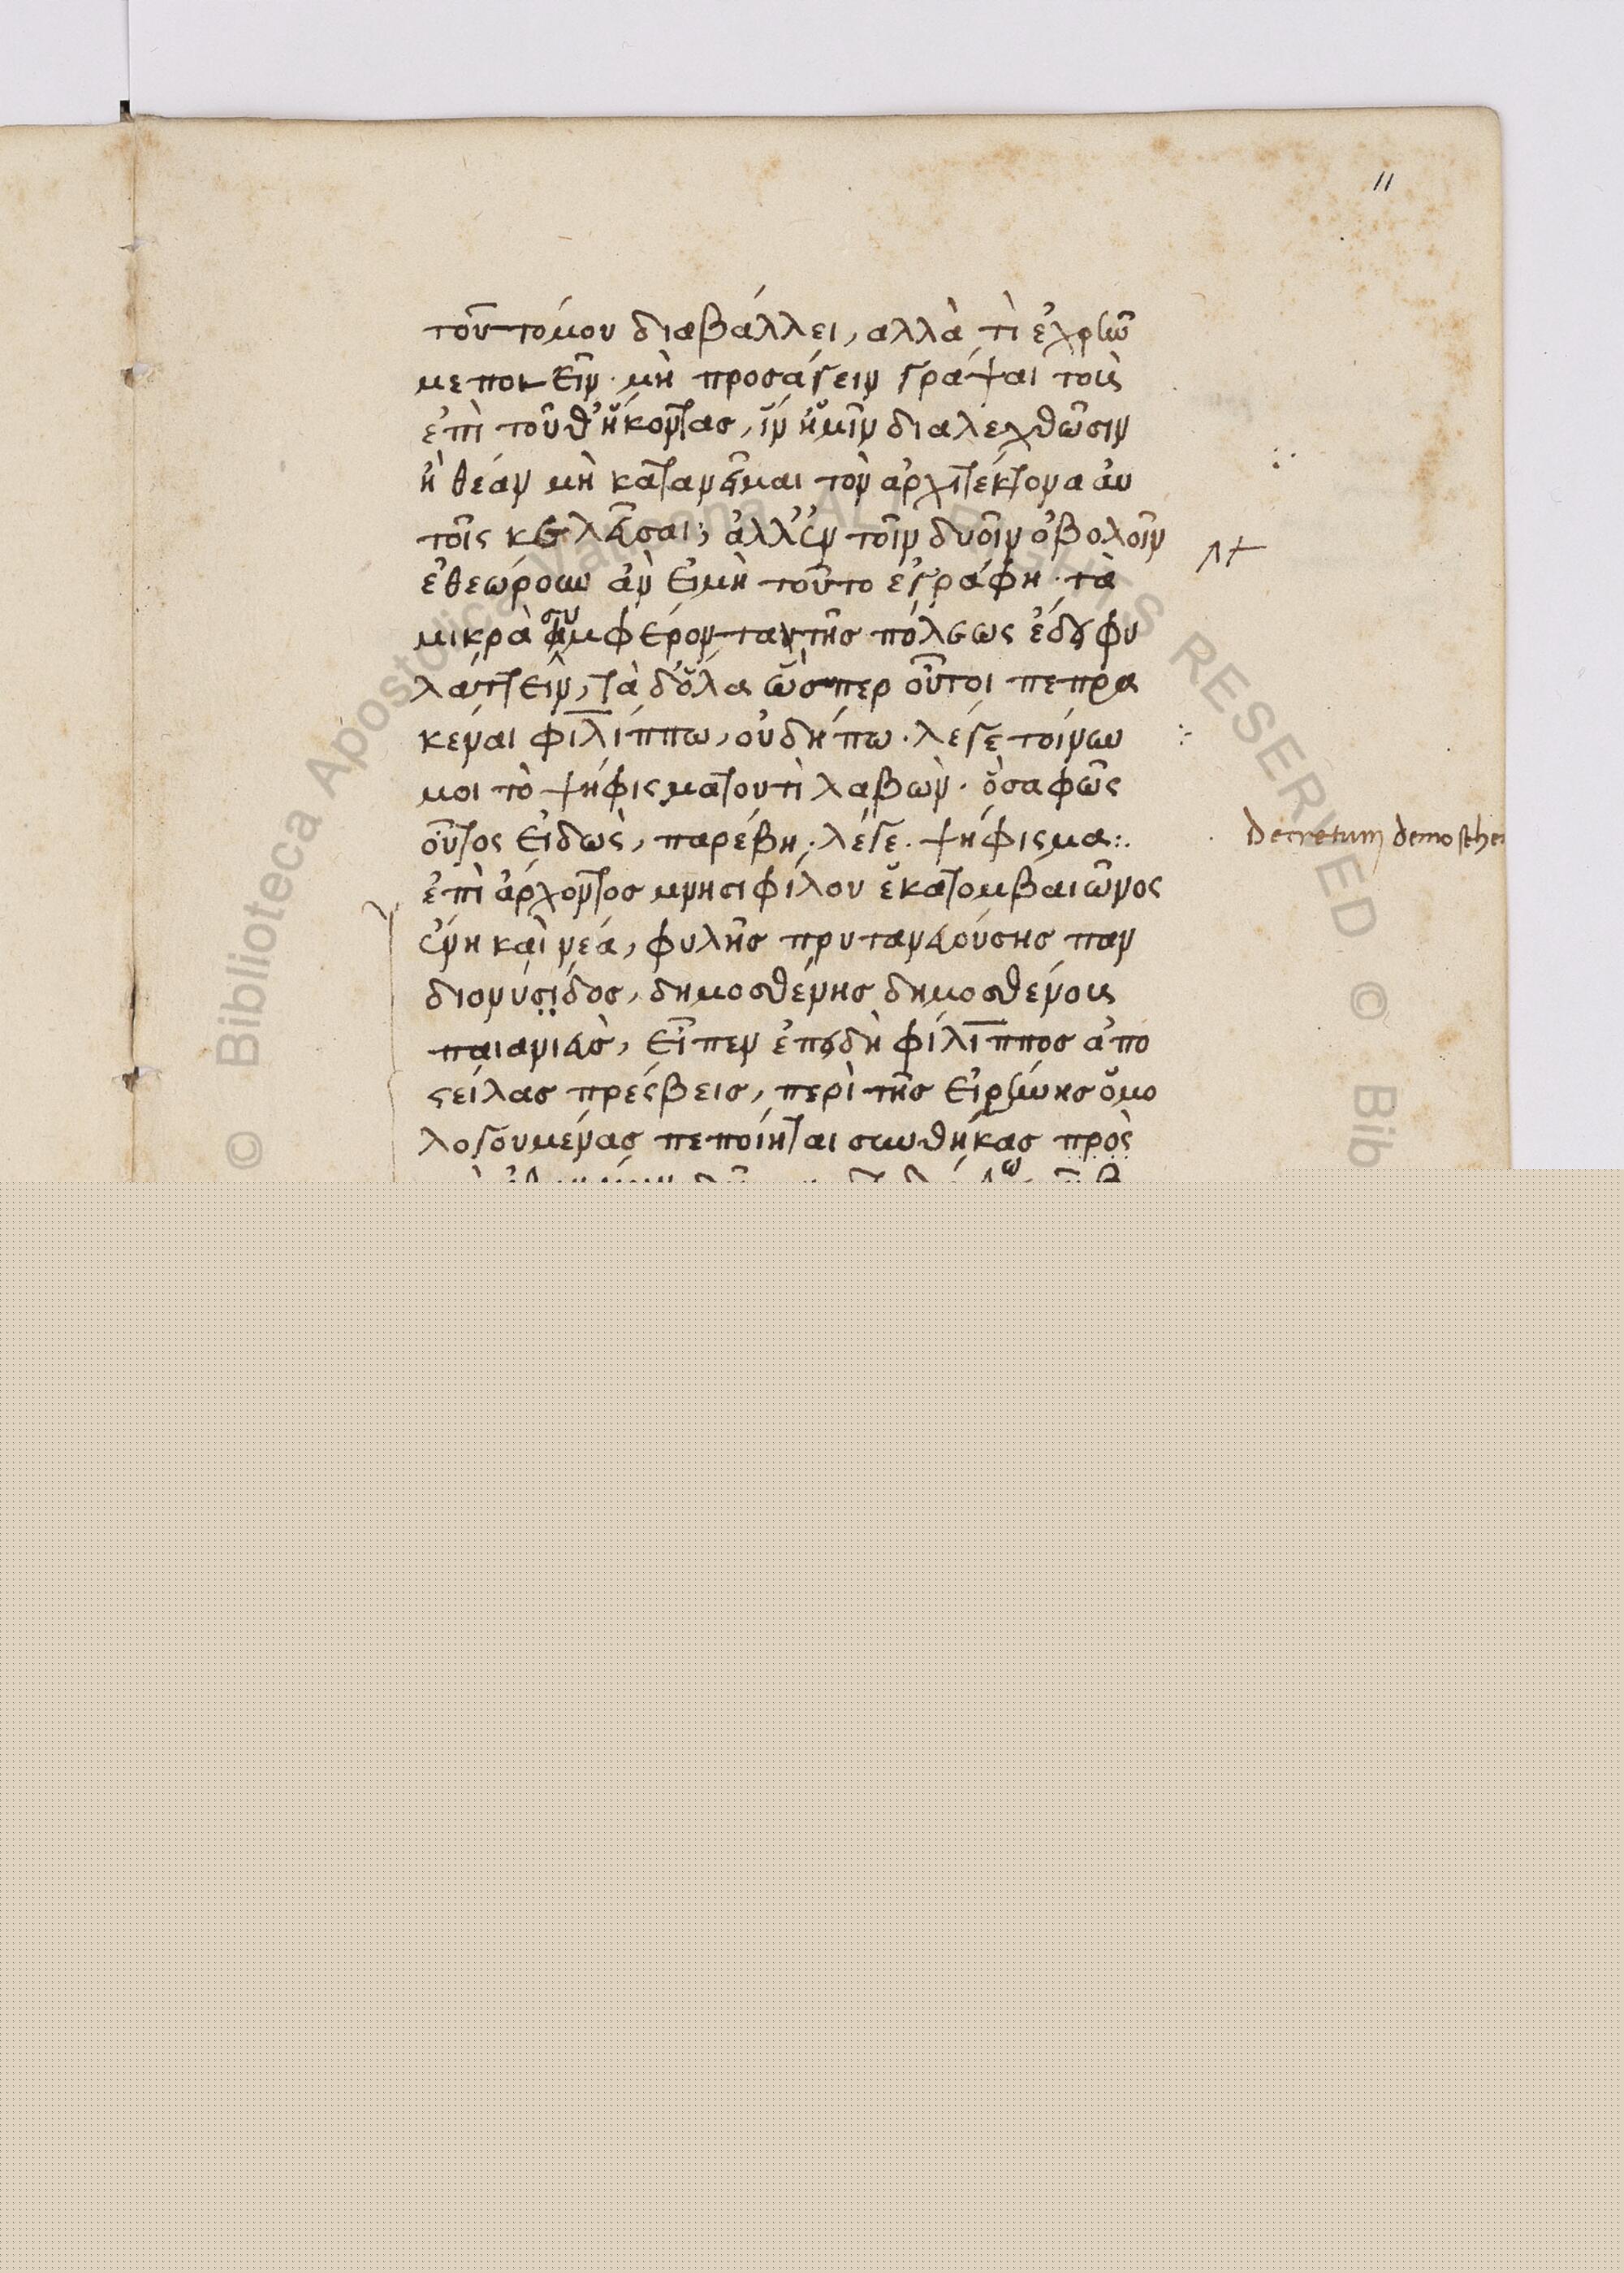 11
τοῦτό μου διαβάλλει, αλλὰ τί ἐχρῆν
με ποιεῖν· μὴ προσάγειν γράψαι τοὺς
ἐπὶ τοῦθ ἥκοντας, ἵν ἡμῖν διαλεχθῶσιν
ἢ θέαν μὴ κατανεῖμαι τὸν ἀρχιτέκτονα αὐ
τοῖς κελεῦσαι; ἀλλ ἐν τοῖν δυοῖν ὀβολοῖν
ἐθεώρουν ἂν εἰ μὴ τοῦτο ἐγράφη· τὰ
μικρὰ συμφέροντα τῆς πόλεως ἔδει φυ
λάττειν, τὰ δ ὅλα ὥσπερ οὗτοι πεπρα
κέναι φιλίππω, οὐ δήπω· λέγε τοίνυν
μοι τὸ ψήφισμα τουτὶ λαβὼν· ὃ σαφῶς
οὗτος εἰδὼς, παρέβη· λέγε· ψήφισμα:.
Decretum demosthe
ἐπὶ ἄρχοντος μνησιφίλου ἑκατομβαιῶνος
ἕνη καὶ νέα, φυλῆς πρυτανευούσης παν
διονυσίδος, δημοσθένης δημοσθένους
παιανιεὺς, εἶπεν ἐπειδὴ φίλιππος ἀπο
στείλας πρέσβεις, περὶ τῆς εἰρήνης ὁμο
λογουμένας πεποίηται συνθήκας πρὸς
© Biblioteca Apostolica Vaticana ALL RIGHTS RESERVED © Bib